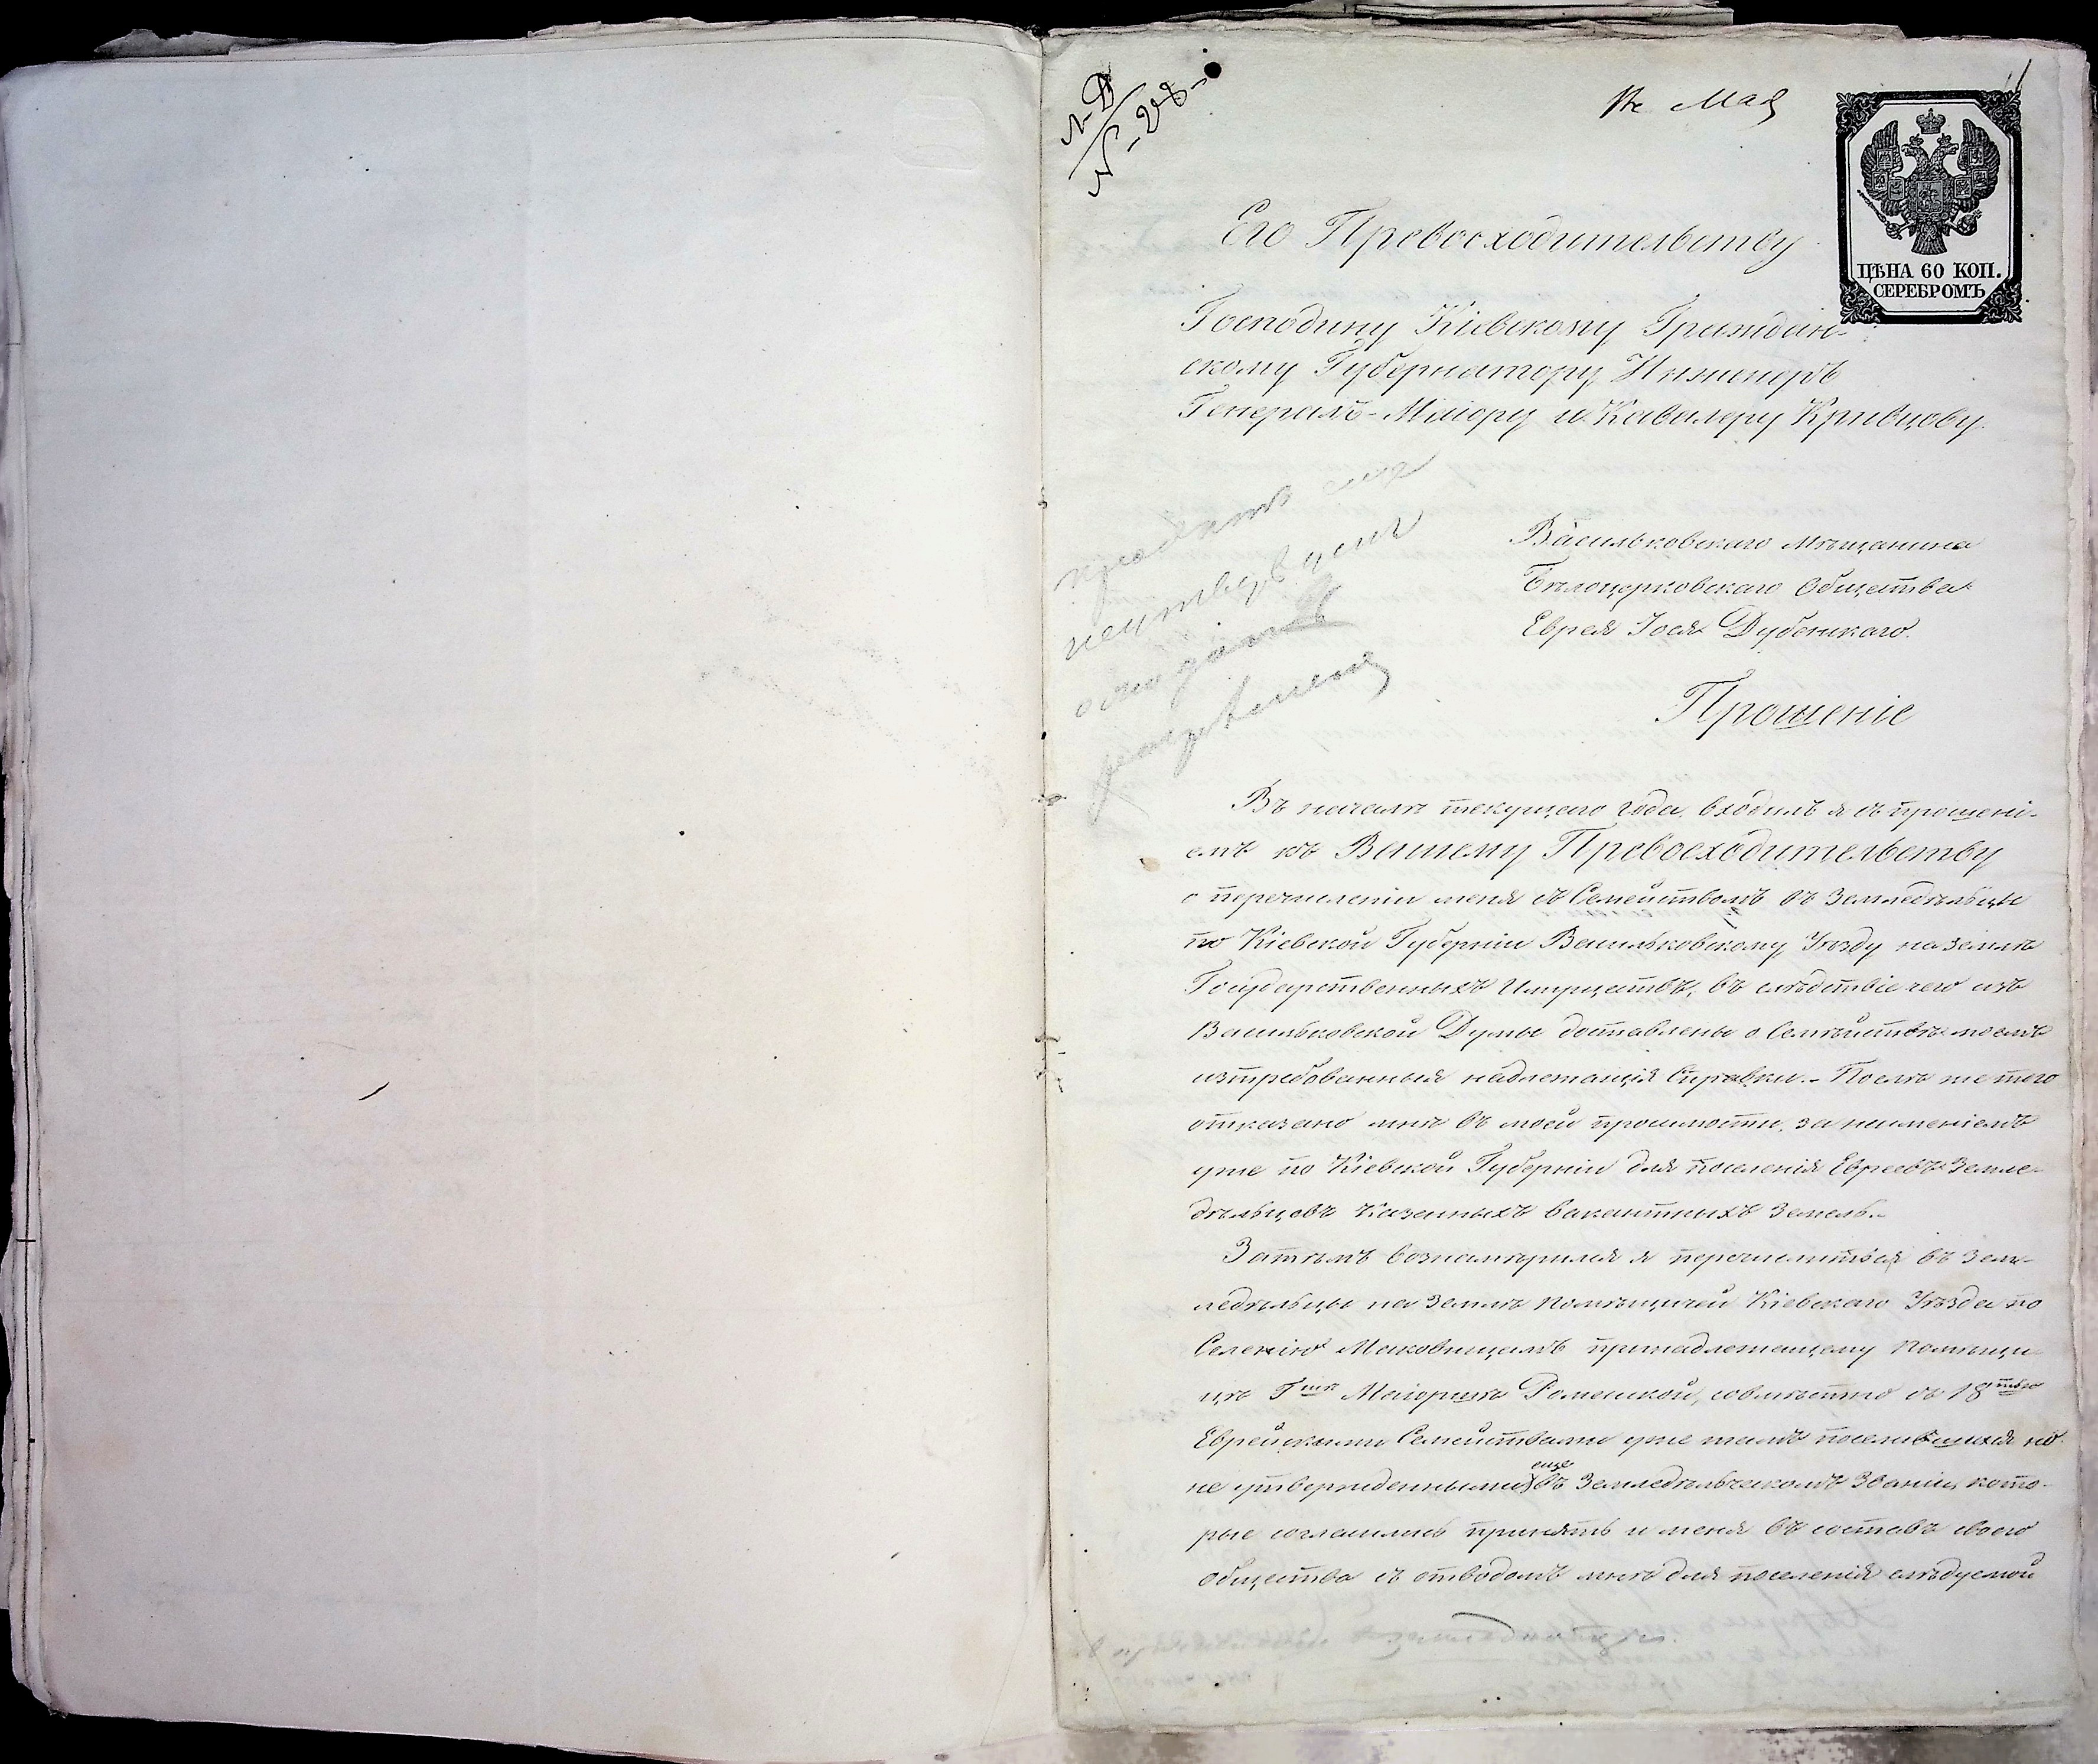 Мая
ЦѢНА 60 КОП.
СЕРЕБРОМЪ
Его Превосходительству
Господину Кіевскому Граждан-
скому Губернатору Инженеръ
Генералъ-Маіору и Кавалеру Кривцову
Васильковскаго Мѣщанина
Бѣлоцерковскаго Общества
Еврея Іося Дубенскаго.
Прошеніе
Въ началѣ текущаго года, входилъ я съ прошені-
емъ къ Вашему Превосходительству
о перечисленіи меня съ Семействомъ въ Земледѣльцы
по Кіевской Губерніи Васильковскому Уѣзду на землѣ
Государственныхъ Имуществъ, въ слѣдствіе чего изъ
Васильковской Думы доставлены о Семѣйствѣ моемъ
изтребованныя надлежащія Справки.- Послѣ же того
отказано мнѣ въ моей прозьмости, за неимѣніемъ
уже по Кіевской Губерніи для поселенія Евреевъ Земле-
дѣльцевъ Казенныхъ вакантныхъ Земель.-
Затѣмъ вознамѣрился я перечислиться въ Зем-
ледѣльцы на Землѣ Помѣщичей Кіевскаго Уѣзда по
Селенію Маковищамъ принадлежащему Помѣщи-
цѣ Гжѣ Маіоршѣ Роменской, совмѣстно съ 18тью
Еврейскими Семействами уже тамъ поселившихся но
еще
не утвержденными въ Земледѣльческомъ Званіи, кото-
рые согласились принять и меня въ составъ своего
общества съ отводомъ мнѣ для поселенія слѣдуемой